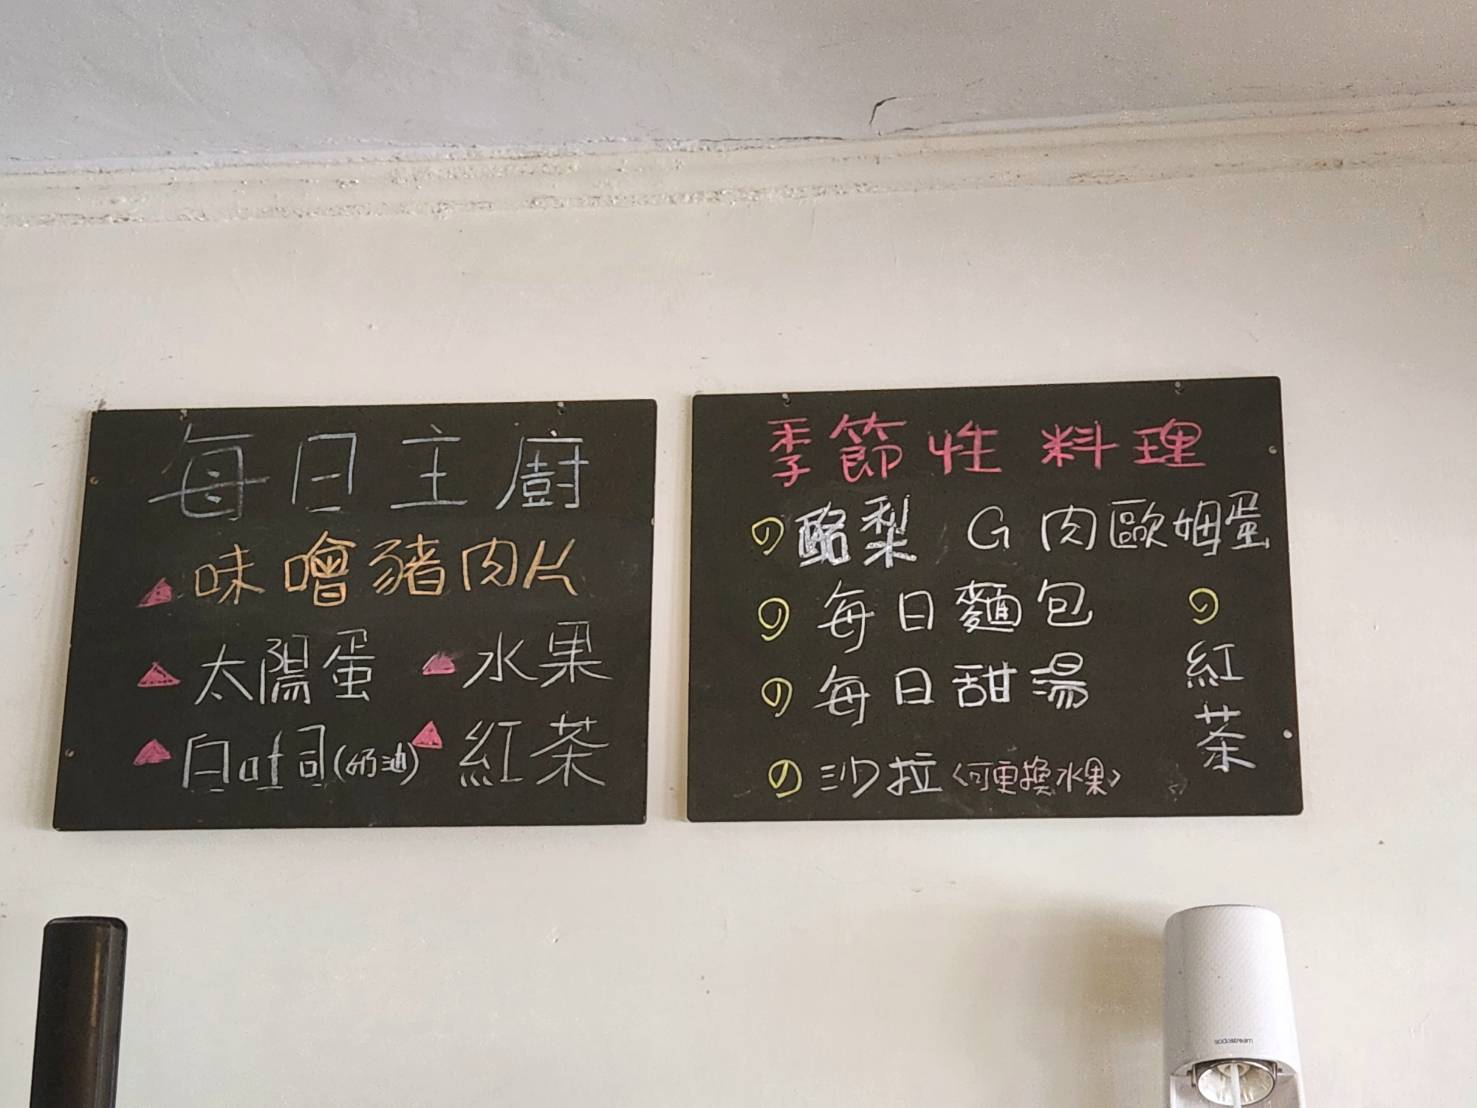 每日主廚
味噌豬肉片
太陽蛋 水果
白at司(奶油) 紅茶
季節性料理
酪梨 G肉歐姆蛋
每日麵包
每日甜湯
沙拉<可更換水果>
紅茶
sodastream